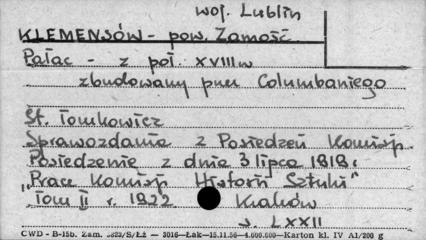 woj. Lublin
KLEMENSÓW - pow. Zamość
Pałac - z poł. XVIII w
zbudowany przez Columbaniego
St. Tomkowicz
Sprawozdania z Posiedzeń Komisji
Posiedzenie z dnia 3 lipca 1818 r
„Prace Komisji Historii Sztuki"
Tom II r. 1922 Kraków
s. LXXII
CWD - B-15b. Zam. S/Łż — 3016—Łak—15.11.56—4.000.000—Karton kl. IV A1/200 g